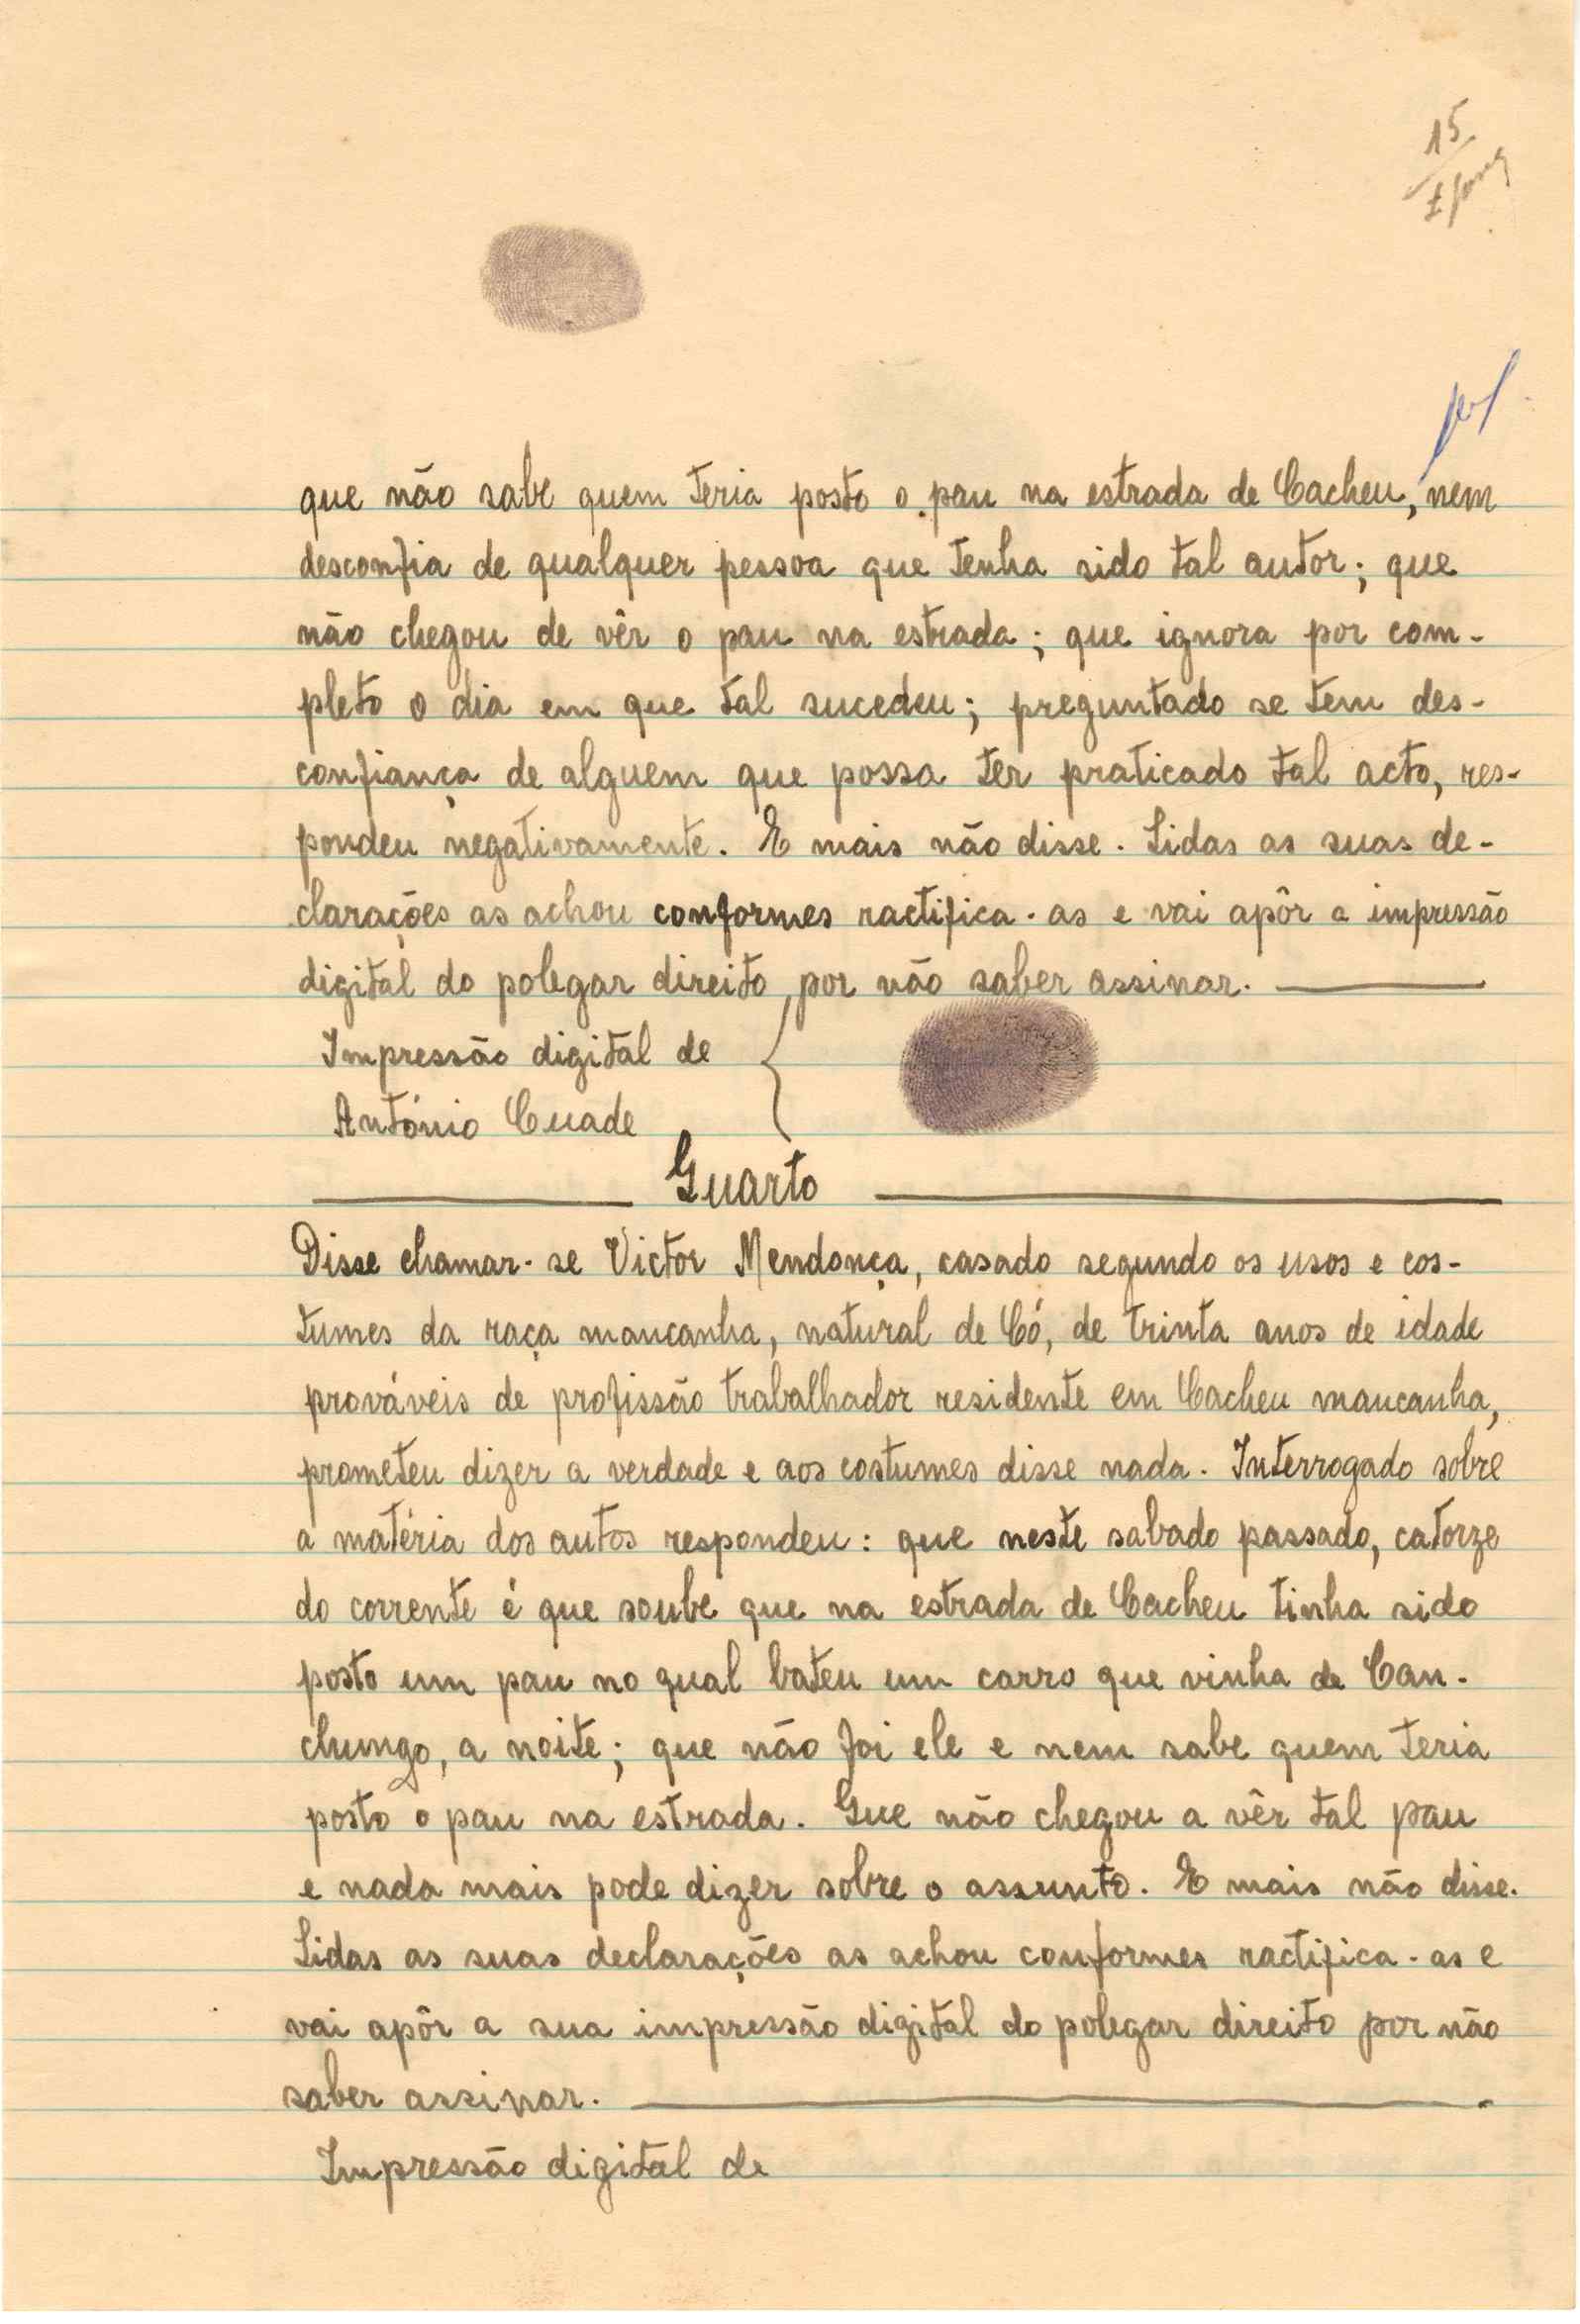 15
que não sabe quem teria posto o pau na estrada de Cacheu, nem
desconfia de qualquer pessoa que tenha sido tal autor; que
não chegou de vêr o pau na estrada; que ignora por com-
pleto o dia em que tal sucedeu; preguntado se tem des-
confiança de alguem que possa ter praticado tal acto, res-
pondeu negativamente. E mais não disse. Lidas as suas de-
clarações as achou conformes ractifica-as e vai apôr a impressão
digital do polegar direito, por não saber assinar.
Impressão digital de
António Cuade
Quarto
Disse chamar-se Victor Mendonça, casado segundo os usos e cos-
tumes da raça mancanha, natural de Có, de trinta anos de idade
prováveis de profissão trabalhador residente em Cacheu mancanha,
prometeu dizer a verdade e aos costumes disse nada. Interrogado sobre
a matéria dos autos respondeu: que neste sabado passado, catorze
do corrente é que soube que na estrada de Cacheu tinha sido
posto um pau no qual bateu um carro que vinha de Can-
chungo, a noite; que não foi ele e nem sabe quem teria
posto o pau na estrada. Que não chegou a vêr tal pau
e nada mais pode dizer sobre o assunto. E mais não disse.
Lidas as suas declarações as achou conformes ractifica-as e
vai apôr a sua impressão digital do polegar direito por não
saber assinar.
Impressão digital de